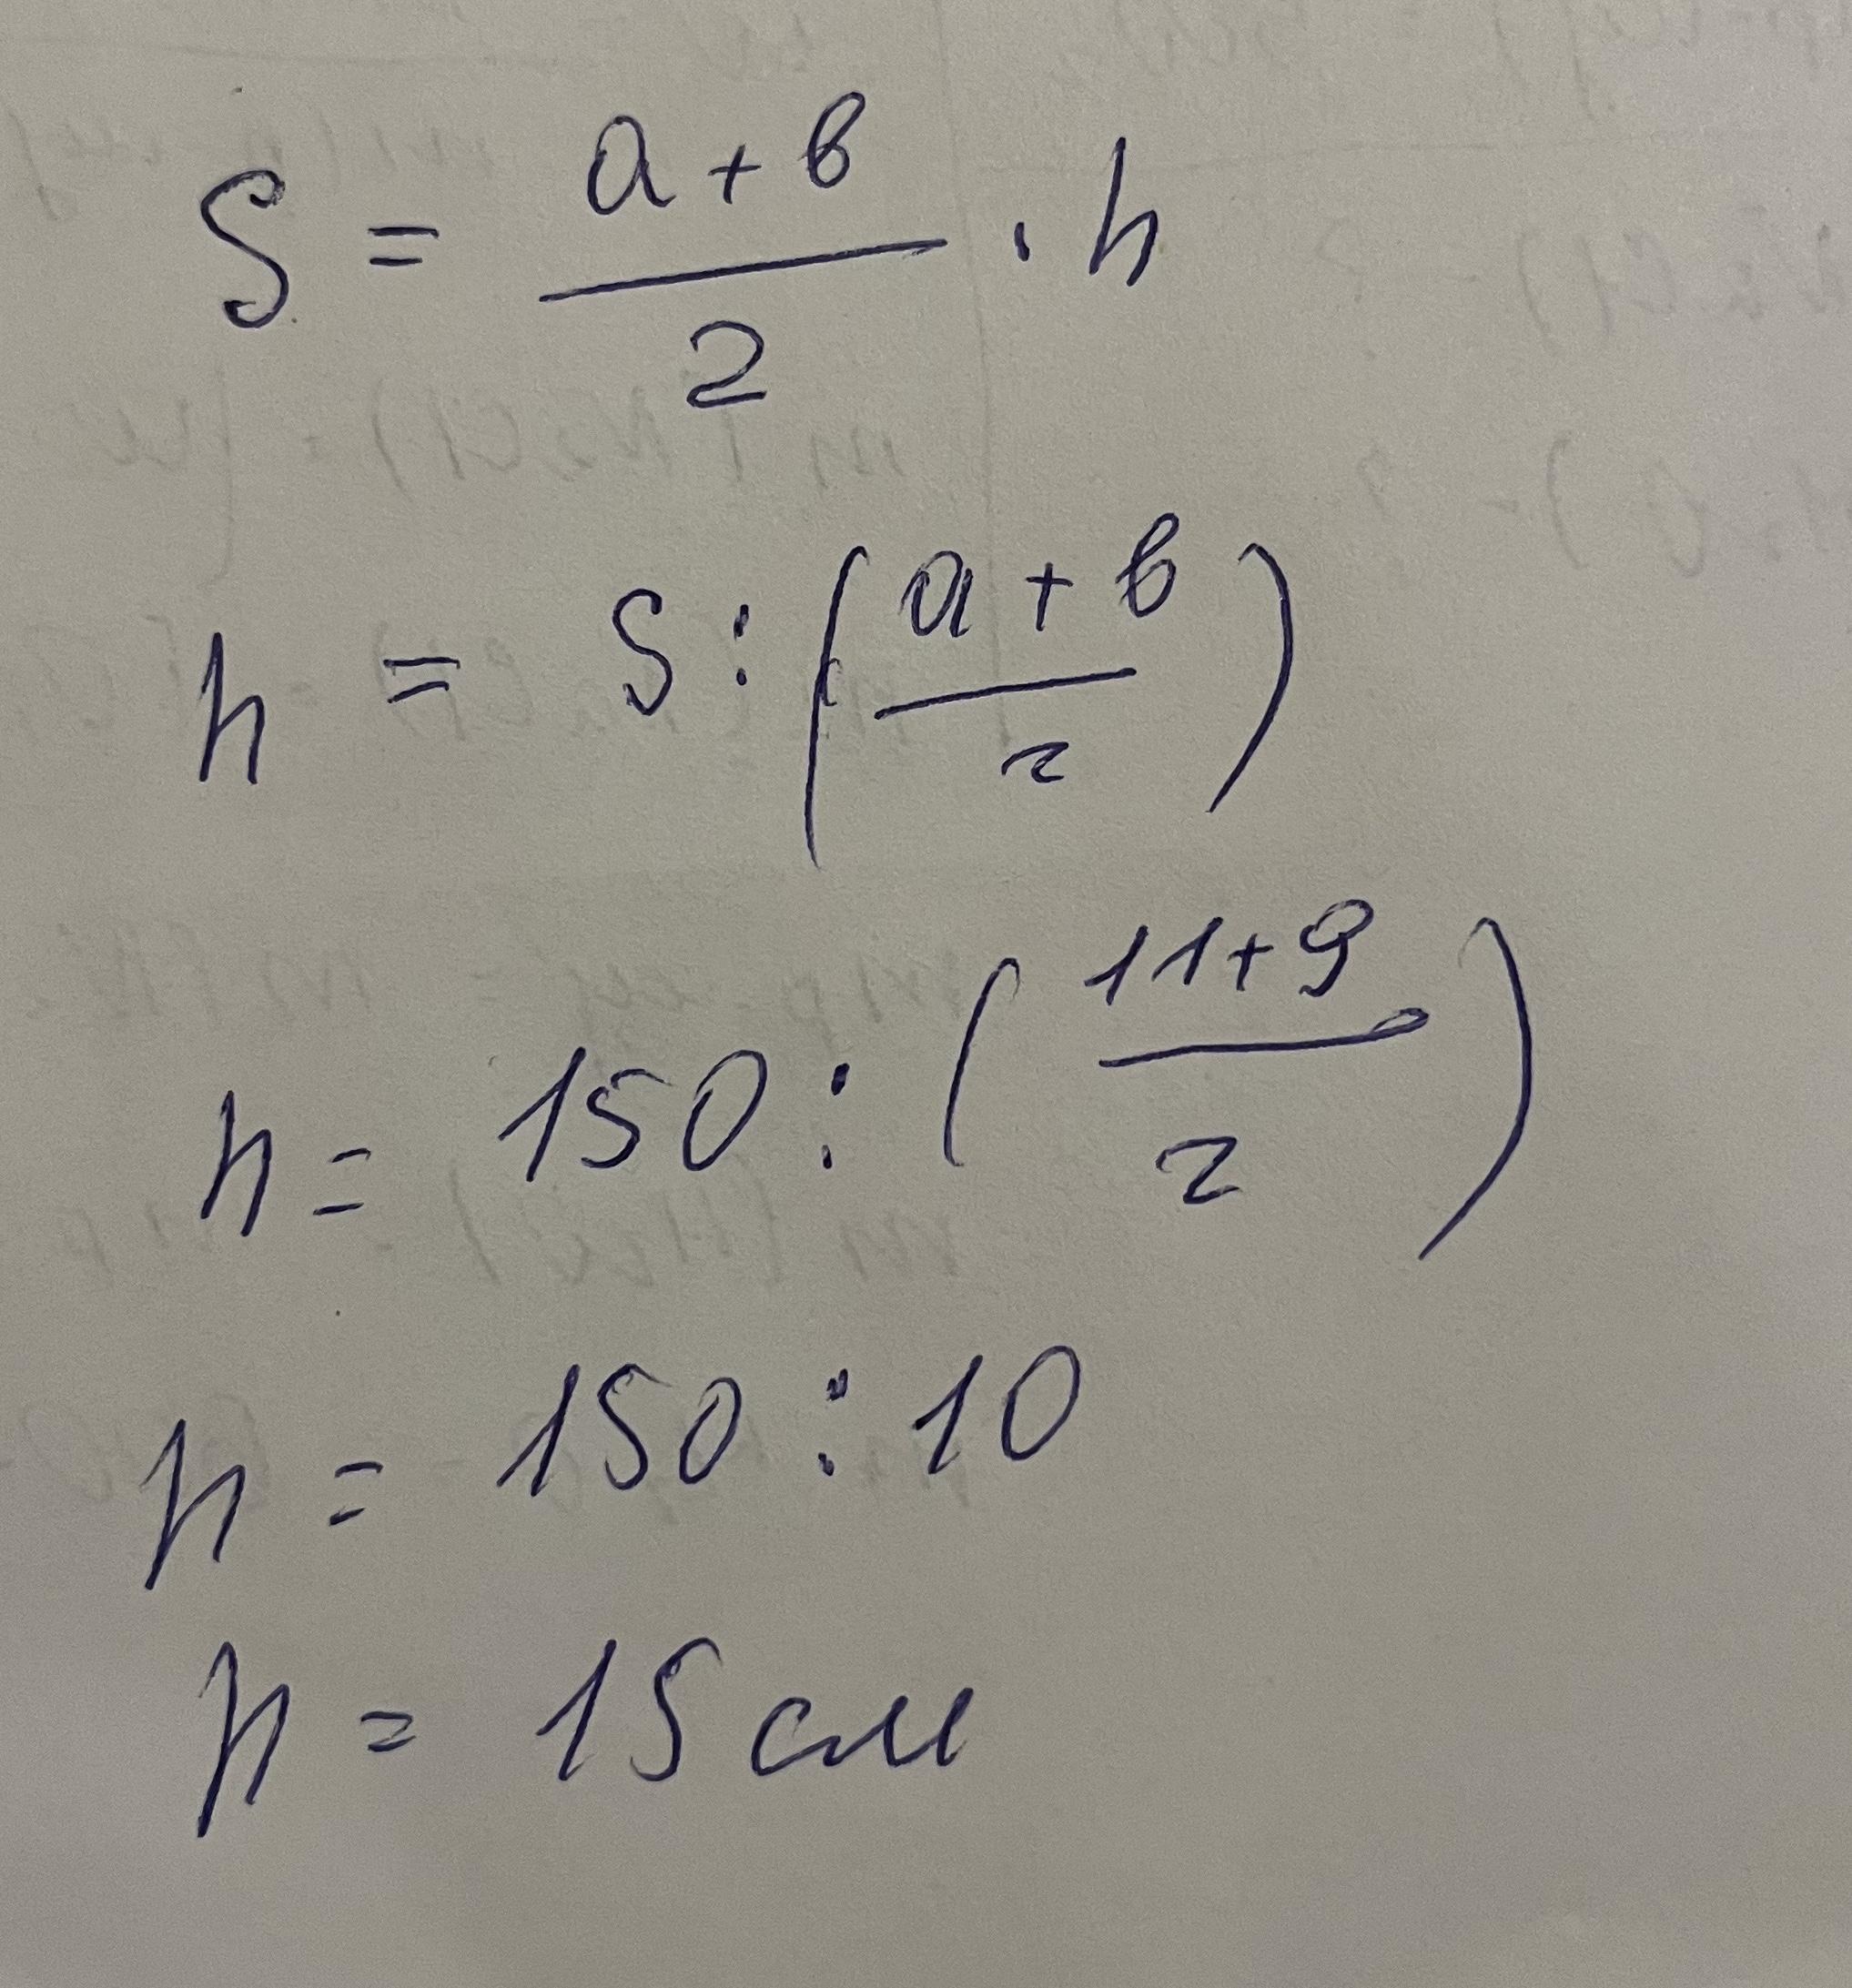 S = (a + b)/2 · h
h = S : ((a + b)/2)
h = 150 : ((11+9)/2)
h = 150 : 10
h = 15 см